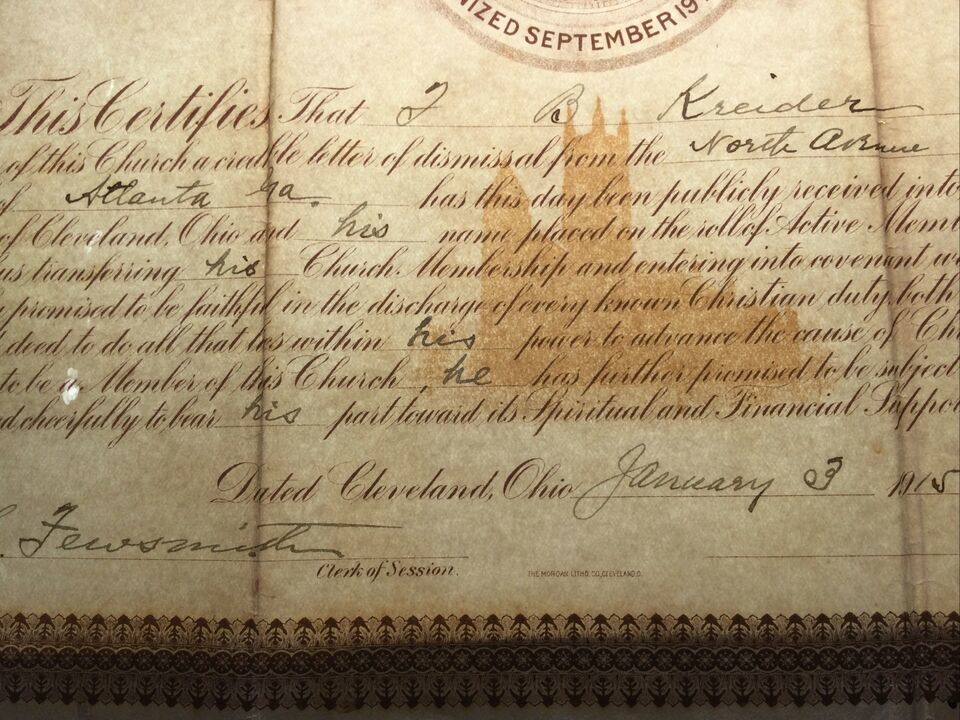 NIZED SEPTEMBER 19
This Certifies That J B Kreider
of this Church a credible letter of dismissal from the North Avenue
of Atlanta Ga. has this day been publicly received into
of Cleveland, Ohio and his name placed on the roll of Active Mem
us transferring his Church Membership and entering into covenant w
promised to be faithful in the discharge of every known Christian duty, both
deed to do all that lies within his power to advance the cause of Ch
to be a Member of this Church, he has further promised to be subject
d cheerfully to bear his part toward its Spiritual and Financial Suppo
Dated Cleveland, Ohio January 3 1915
Fewsmith
Clerk of Session.
THE MORGAN LITHO. CO. CLEVELAND. O.